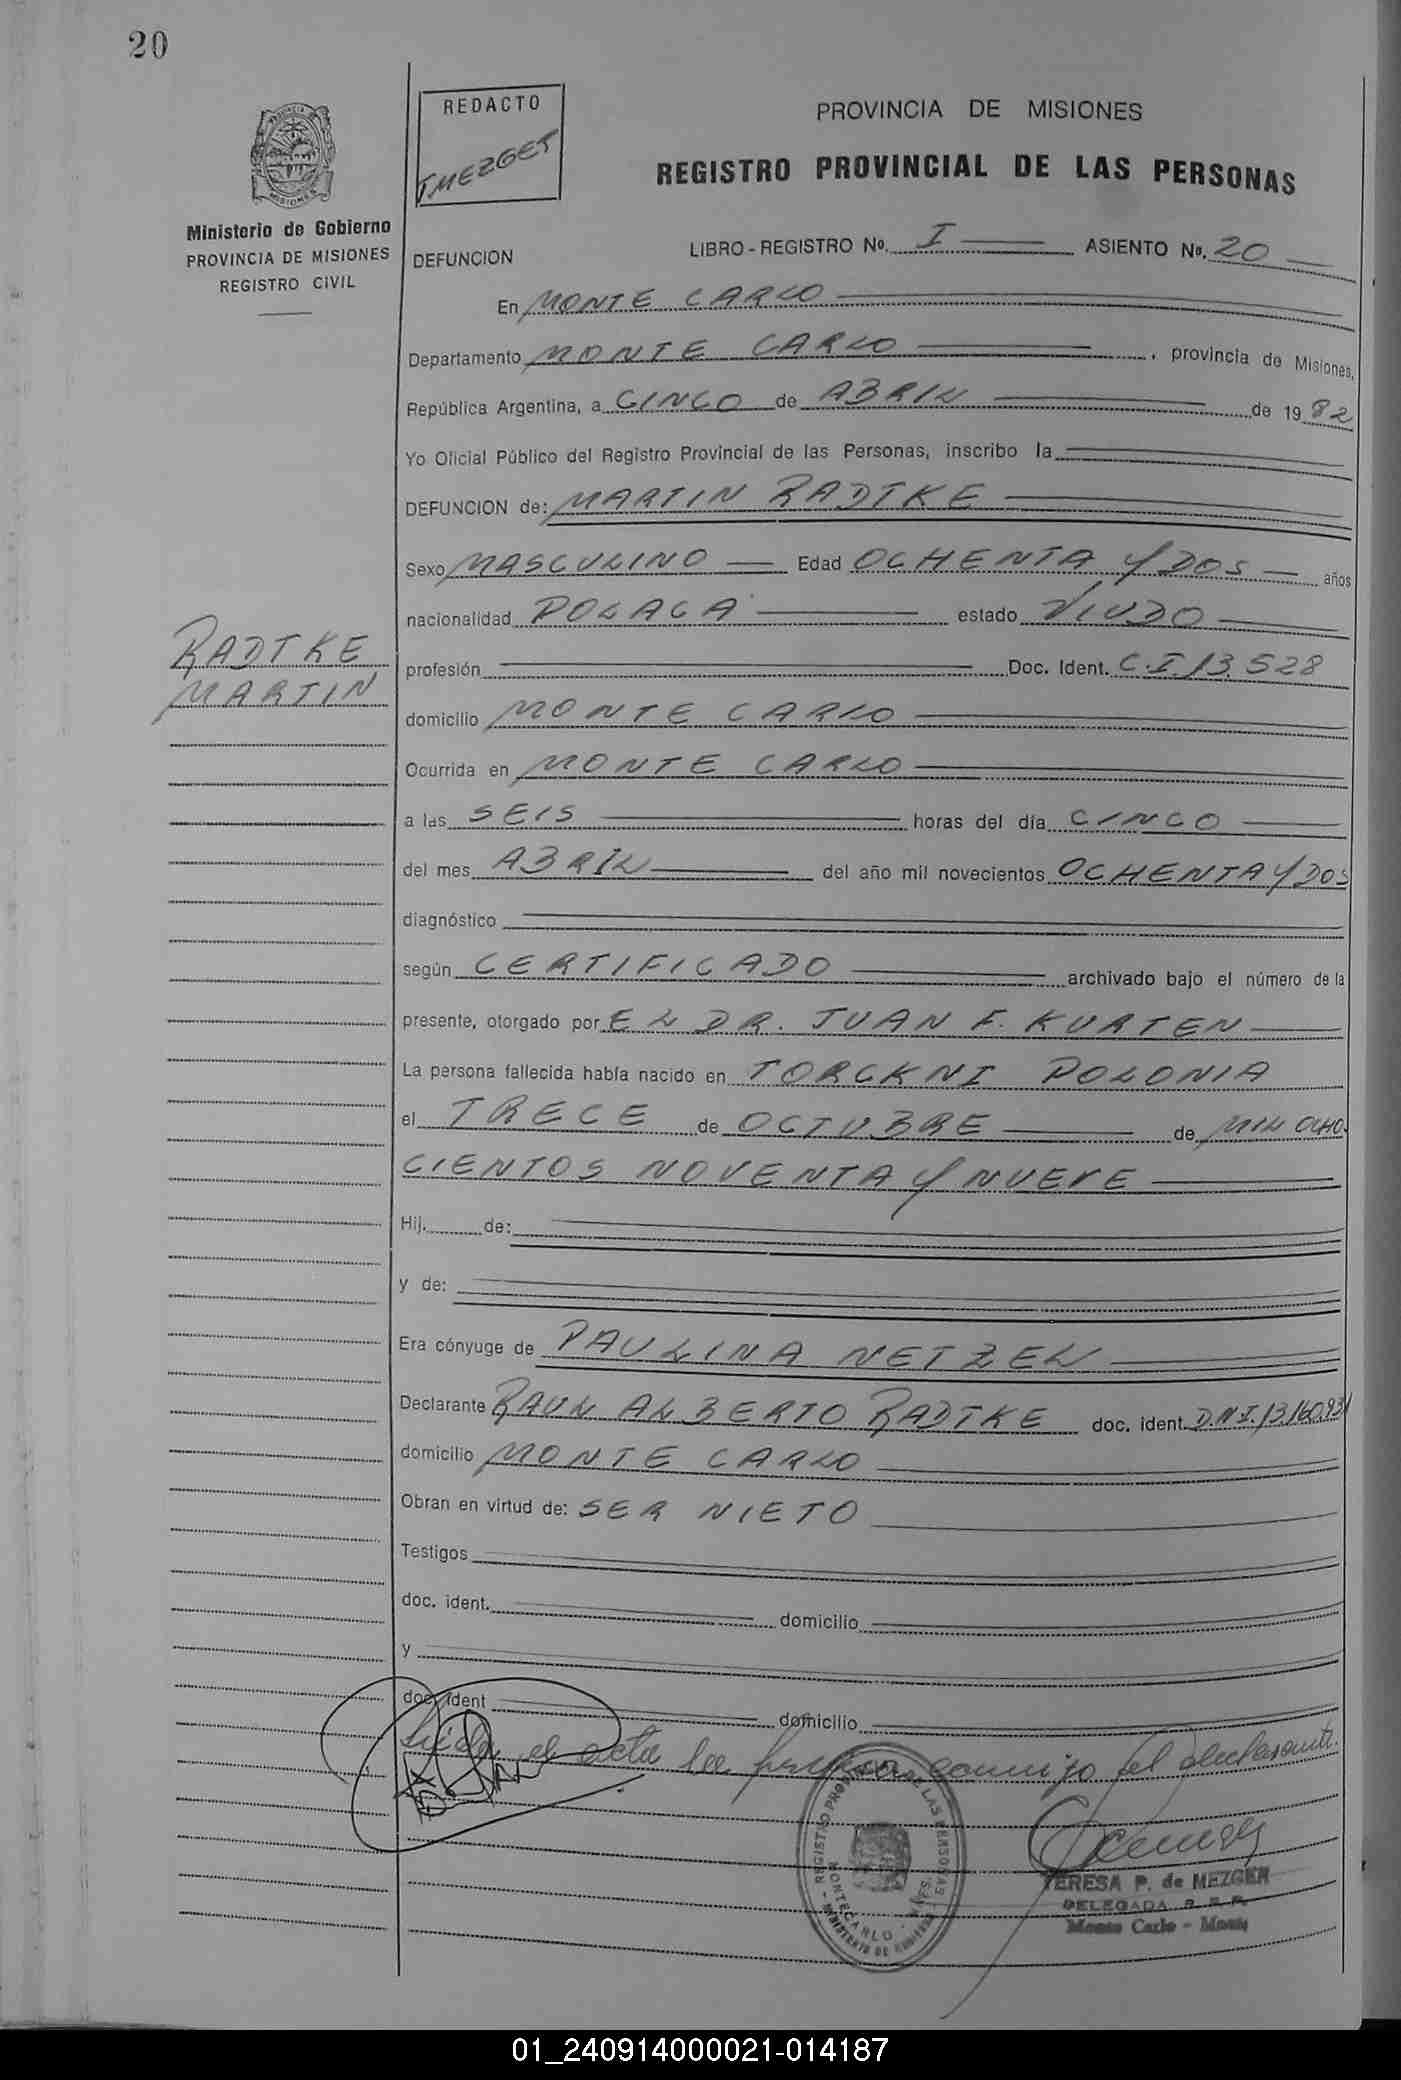 20
REDACTO
TMEZGER
PROVINCIA DE MISIONES
REGISTRO PROVINCIAL DE LAS PERSONAS
Ministerio de Gobierno
PROVINCIA DE MISIONES
REGISTRO CIVIL
DEFUNCION
LIBRO - REGISTRO No. I ASIENTO No. 20
En MONTE CARLO
Departamento MONTE CARLO, provincia de Misiones,
República Argentina, a CINCO de ABRIL de 1982
Yo Oficial Público del Registro Provincial de las Personas, inscribo la
DEFUNCION de: MARTIN RADTKE
Sexo MASCULINO Edad OCHENTA Y DOS años
nacionalidad POLACA estado VIUDO
RADTKE
MARTIN
profesión Doc. Ident. C.I. 13.528
domicilio MONTE CARLO
Ocurrida en MONTE CARLO
a las SEIS horas del día CINCO
del mes ABRIL del año mil novecientos OCHENTA Y DOS
diagnóstico
según CERTIFICADO archivado bajo el número de la
presente, otorgado por EL DR. JUAN F. KURTEN
La persona fallecida había nacido en TORCKNI POLONIA
el TRECE de OCTUBRE de MIL OCHO
CIENTOS NOVENTA Y NUEVE
Hij. de:
y de:
Era cónyuge de PAULINA NETZEL
Declarante RAUL ALBERTO RADTKE doc. ident. D.N.I. 13.160.931
domicilio MONTE CARLO
Obran en virtud de: SER NIETO
Testigos
doc. ident. domicilio
y
doc. ident domicilio
Leída el acta la firma conmigo el declarante.
REGISTRO PROVINCIAL DE LAS PERSONAS
MONTECARLO - MNES.
MINISTERIO DE GOBIERNO
TERESA P. de MEZGER
DELEGADA R. P. P.
Monte Carlo - Mnes
01_240914000021-014187